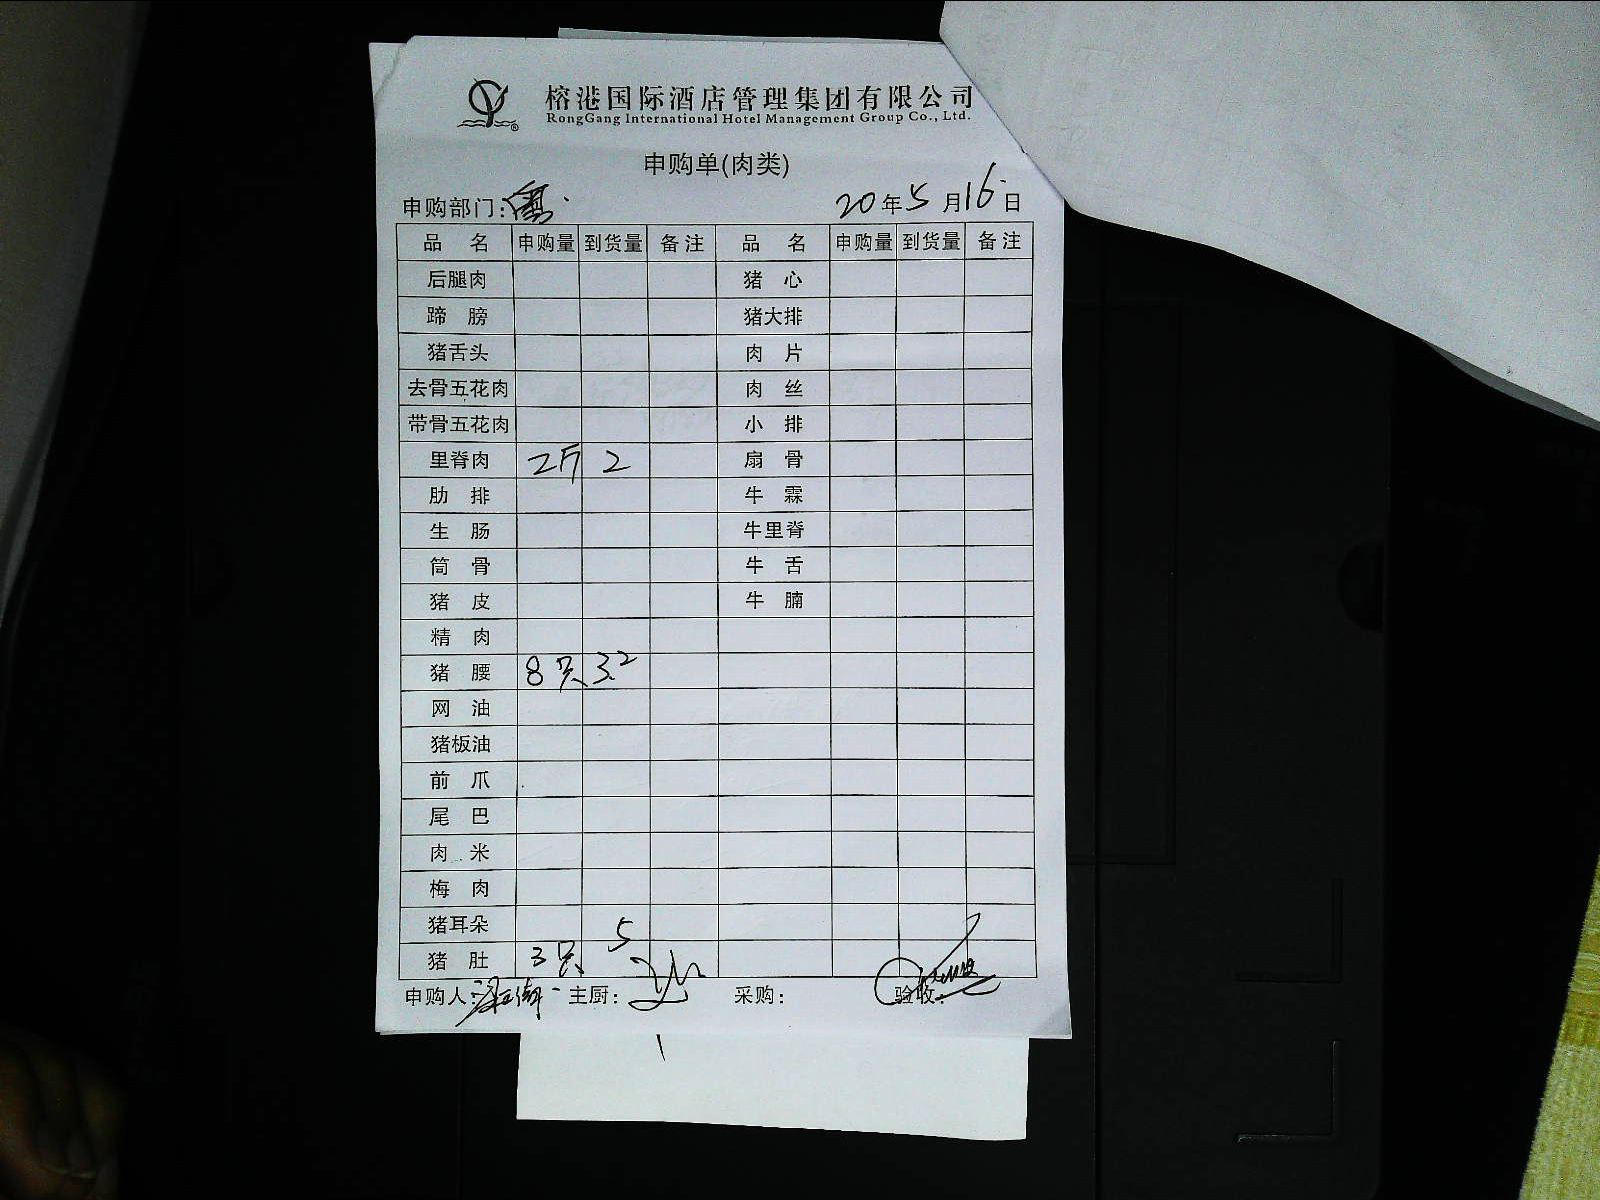 榕港国际酒店管理集团有限公司
RongGang International Hotel Management Group Co., Ltd.
申购单(肉类)
申购部门: 20年5月16日
品 名 申购量 到货量 备注 品 名 申购量 到货量 备注
后腿肉 猪 心
蹄 膀 猪大排
猪舌头 肉 片
去骨五花肉 肉 丝
带骨五花肉 小 排
里脊肉 2斤 2 扇 骨
肋 排 牛 霖
生 肠 牛里脊
筒 骨 牛 舌
猪 皮 牛 腩
精 肉
猪 腰 8只 3.2
网 油
猪板油
前 爪
尾 巴
肉 米
梅 肉
猪耳朵
猪 肚 3只 5
申购人: 主厨: 采购: 验收: